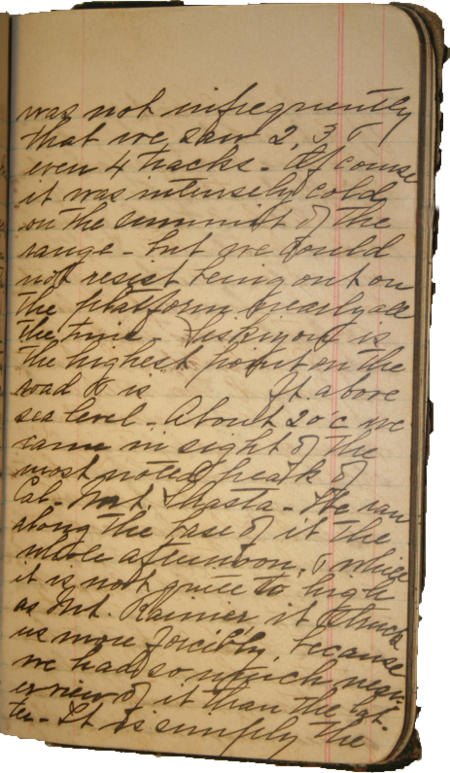 was not infrequently
that we saw 2, 3 &
even 4 tracks - Of course
it was intensely cold
on the summit of the
range - but we could
not resist being out on
the platform nearly all
the time - Siskiyou is
the highest point on the
road & is ft above
sea level - About 2 o'c we
came in sight of the
most noted peak of
Cal - Mt. Shasta - We ran
along the base of it the
whole afternoon, & while
it is not quite so high
as Mt. Rainier, it struck
us more forcibly because
we had so much near-
er view of it than the lat-
ter - It is simply the